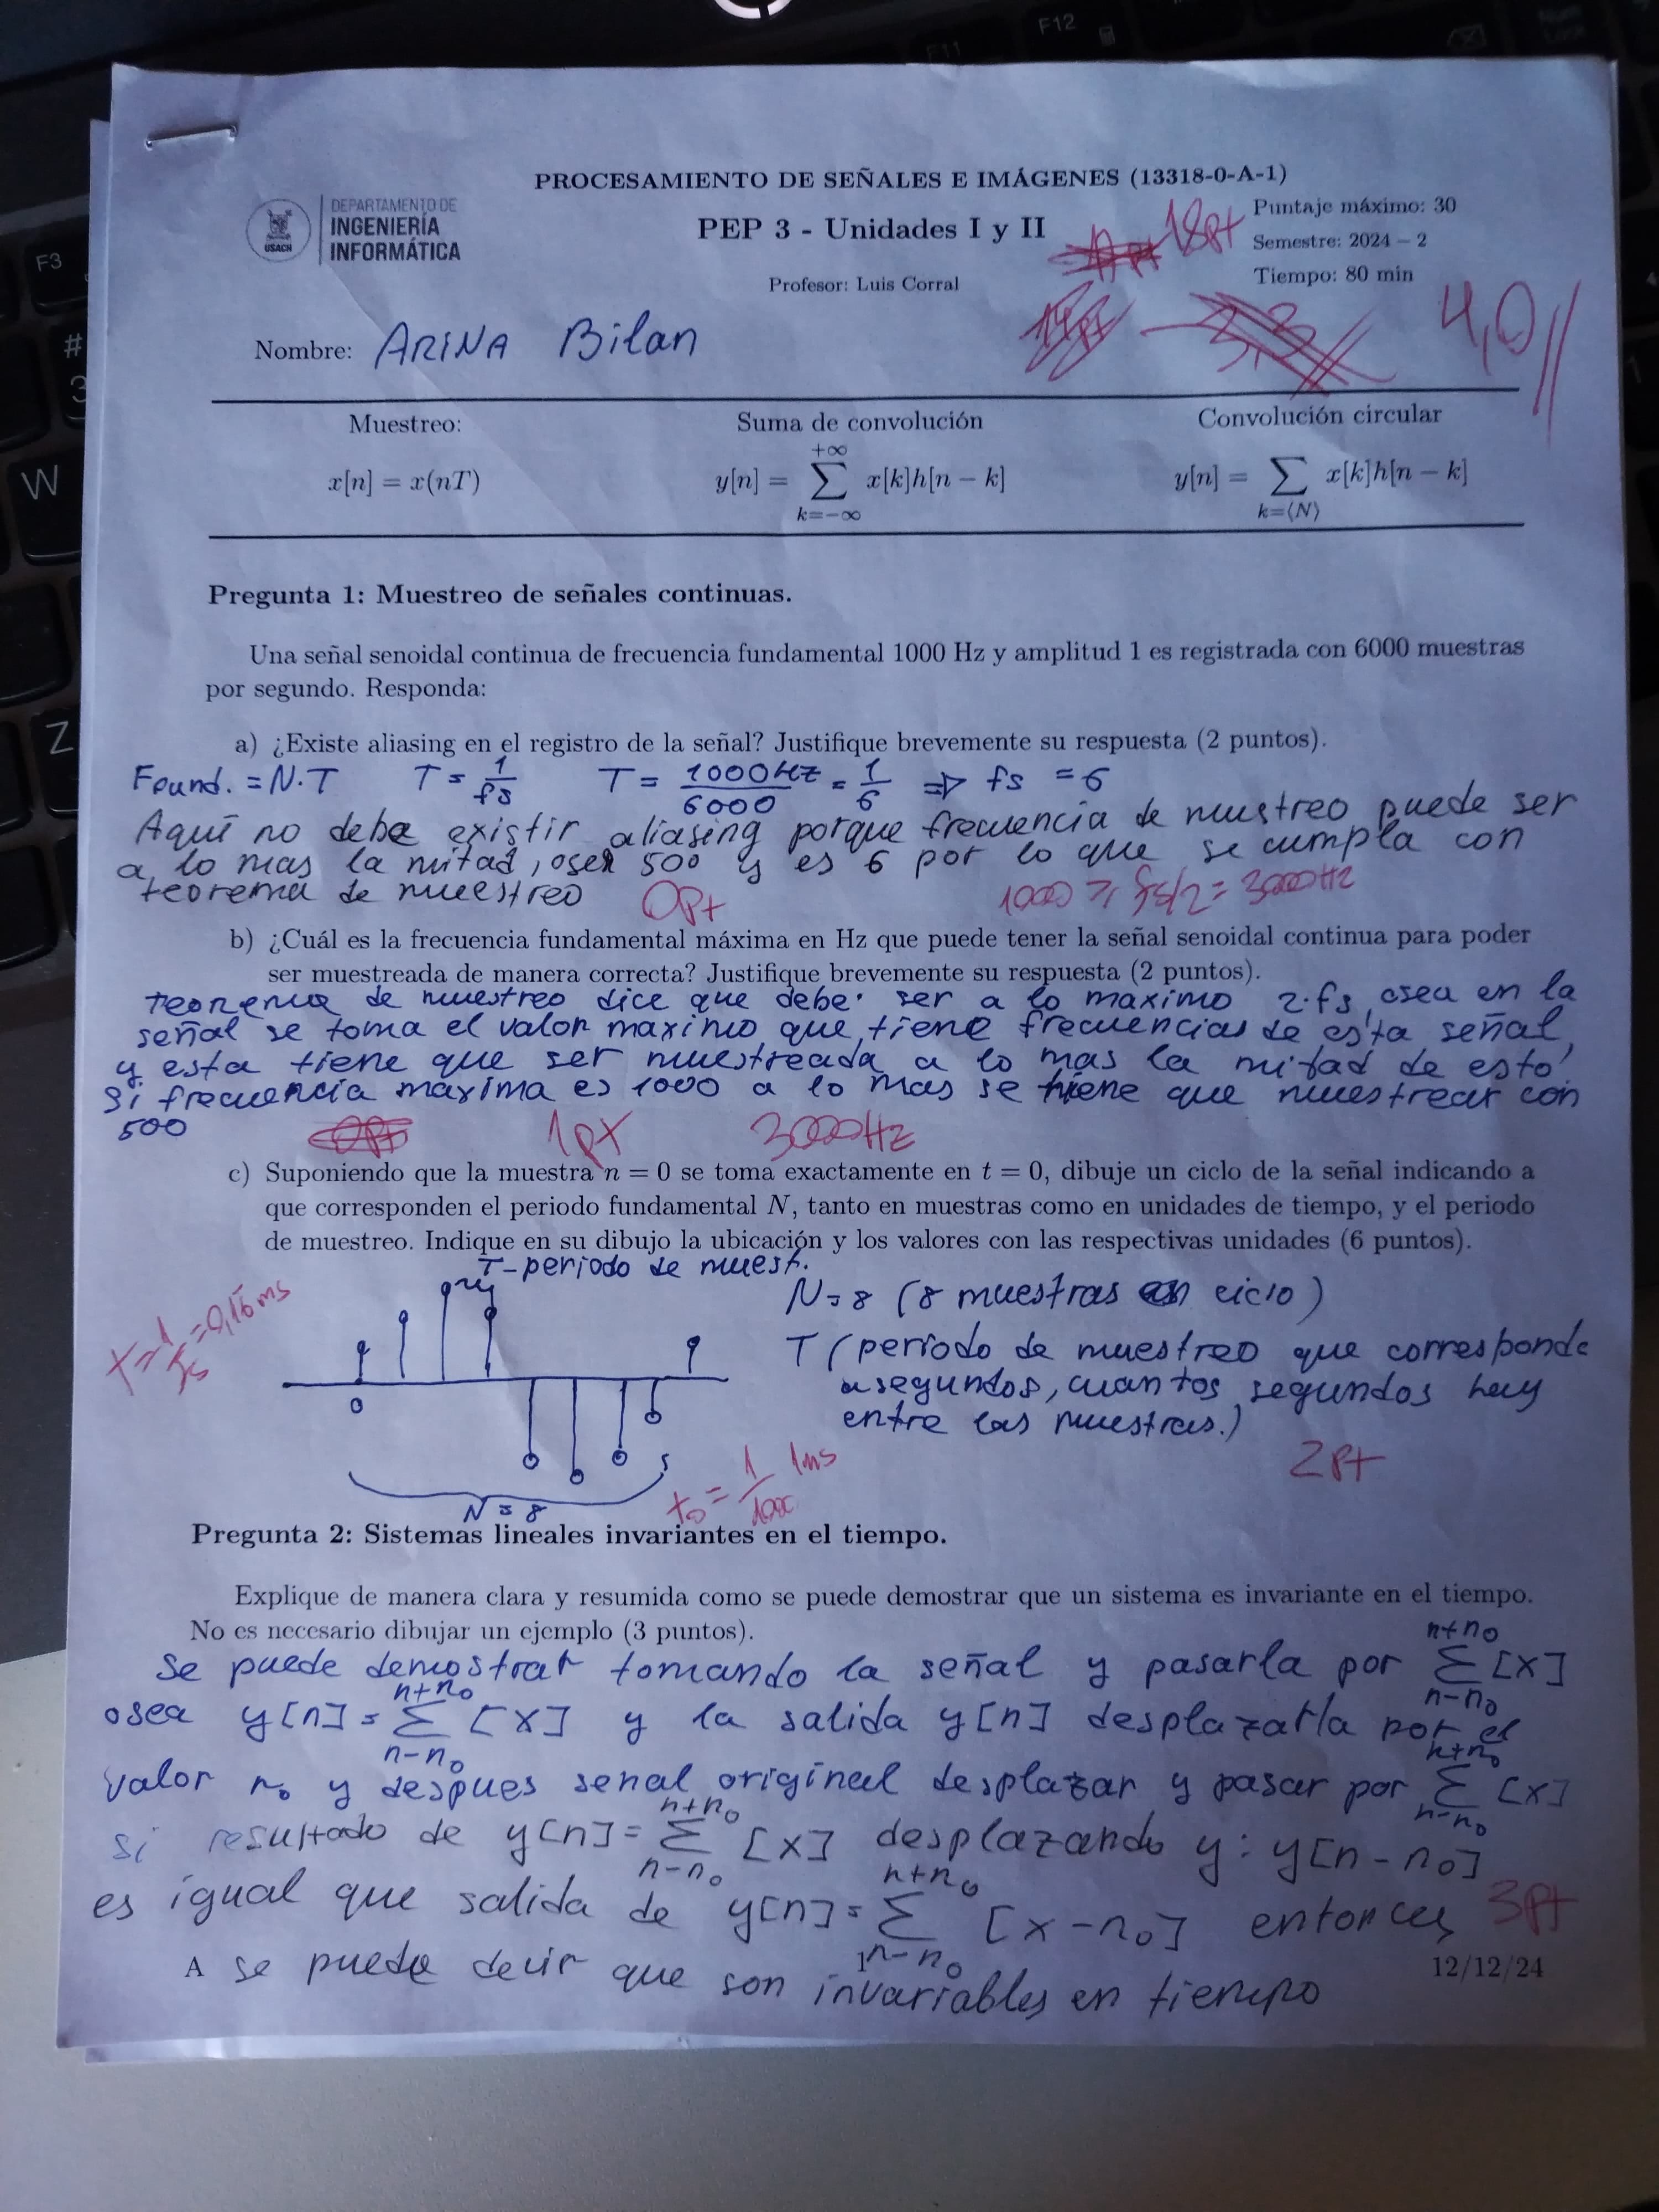 F11
F12
F3
#
3
W
Z
PROCESAMIENTO DE SEÑALES E IMÁGENES (13318-0-A-1)
USACH
DEPARTAMENTO DE
INGENIERÍA
INFORMÁTICA
PEP 3 - Unidades I y II
18pt
Puntaje máximo: 30
Semestre: 2024 – 2
Tiempo: 80 min
Profesor: Luis Corral
4,0
Nombre: ARINA Bilan
Muestreo: Suma de convolución Convolución circular
x[n] = x(nT) y[n] = +∞ ∑ k=−∞ x[k]h[n − k] y[n] = ∑ k=⟨N⟩ x[k]h[n − k]
Pregunta 1: Muestreo de señales continuas.
Una señal senoidal continua de frecuencia fundamental 1000 Hz y amplitud 1 es registrada con 6000 muestras
por segundo. Responda:
a) ¿Existe aliasing en el registro de la señal? Justifique brevemente su respuesta (2 puntos).
Found. = N·T T = 1/fs T = 1000Hz/6000 = 1/6 ⇒ fs = 6
Aquí no debe existir aliasing porque frecuencia de muestreo puede ser
a lo mas la mitad, osea 500 y es 6 por lo que se cumpla con
teorema de muestreo
0pt 1000 ≥ fs/2 = 3000Hz
b) ¿Cuál es la frecuencia fundamental máxima en Hz que puede tener la señal senoidal continua para poder
ser muestreada de manera correcta? Justifique brevemente su respuesta (2 puntos).
teorema de muestreo dice que debe ser a lo maximo 2·fs, osea en la
señal se toma el valor maximo que tiene frecuencias de esta señal
y esta tiene que ser muestreada a lo mas la mitad de esto
si frecuencia maxima es 1000 a lo mas se tiene que muestrear con
500
1pt 3000Hz
c) Suponiendo que la muestra n = 0 se toma exactamente en t = 0, dibuje un ciclo de la señal indicando a
que corresponden el periodo fundamental N, tanto en muestras como en unidades de tiempo, y el periodo
de muestreo. Indique en su dibujo la ubicación y los valores con las respectivas unidades (6 puntos).
T - periodo de muest.
T = 1/fs = 0,16ms
N = 8 (8 muestras en ciclo)
T (periodo de muestreo que corresponde
a segundos, cuantos segundos hay
entre las muestras.)
0
N = 8
t0 = 1/1000 1ms
2pt
Pregunta 2: Sistemas lineales invariantes en el tiempo.
Explique de manera clara y resumida como se puede demostrar que un sistema es invariante en el tiempo.
No es necesario dibujar un ejemplo (3 puntos).
Se puede demostrar tomando la señal y pasarla por n+n0 ∑ n−n0 [x]
osea y[n] = n+n0 ∑ n−n0 [x] y la salida y[n] desplazarla por el
valor n0 y despues senal original desplazar y pasar por n+n0 ∑ n−n0 [x]
si resultado de y[n] = n+n0 ∑ n−n0 [x] desplazando y: y[n − n0]
es igual que salida de y[n] = n+n0 ∑ n−n0 [x − n0] entonces
3pt
se puede decir que son invariables en tiempo
A 1 12/12/24